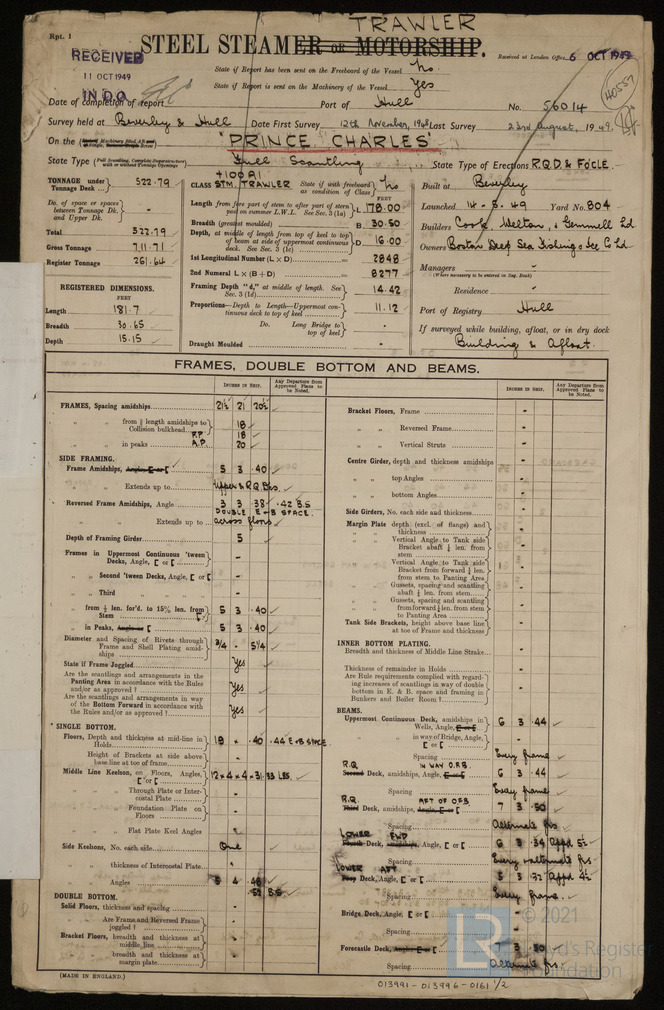 TRAWLER
Rpt. 1
STEEL STEAMER OR MOTORSHIP.
RECEIVED
11 OCT 1949
IN D.O.
Received at London Office 6 OCT 1949
State if Report has been sent on the Freeboard of the Vessel No.
State if Report is sent on the Machinery of the Vessel Yes
Date of completion of report Port of Hull No. 56014
40557
Survey held at Beverley & Hull Date First Survey 12th November, 1948 Last Survey 23rd August, 1949.
On the "PRINCE CHARLES"
State Type Full Scantling State Type of Erections R.Q.D & FO'CLE.
TONNAGE under Tonnage Deck 522.79
Do. of space or spaces between Tonnage Dk. and Upper Dk. -
Total 522.79
Gross Tonnage 711.71
Register Tonnage 261.64
REGISTERED DIMENSIONS.
FEET
Length 181.7
Breadth 30.65
Depth 15.15
+100A1
CLASS STM. TRAWLER State if with freeboard as condition of Class No
FEET
Length from fore part of stem to after part of stern post on summer L.W.L. See Sec. 3 (1a) L 178.00
Breadth (greatest moulded) B 30.50
Depth, at middle of length from top of keel to top of beam at side of uppermost continuous deck. See Sec. 3 (1c) D 16.00
1st Longitudinal Number (L × D) 2848
2nd Numeral L × (B + D) 8277
Framing Depth "d," at middle of length. See Sec. 3 (1d) 14.42
Proportions—Depth to Length—Uppermost continuous deck to top of keel 11.12
Do. Long Bridge to top of keel -
Draught Moulded -
Built at Beverley
Launched 14-3-49 Yard No. 804
Builders Cook, Welton, & Gemmell Ld
Owners Boston Deep Sea Fishing & Ice Co Ld
Managers
(Where necessary to be entered in Reg. Book)
Residence
Port of Registry Hull
If surveyed while building, afloat, or in dry dock
Building & Afloat.
FRAMES, DOUBLE BOTTOM AND BEAMS.
INCHES IN SHIP.
Any Departure from Approved Plans to be Noted.
FRAMES, Spacing amidships 21½ 21 20½
" " from ⅗ length amidships to Collision bulkhead 18
F.P. 18
" " in peaks A.P. 20
SIDE FRAMING.
Frame Amidships, Angle, [ or [ 5 3 .40
" " Extends up to Upper & R.Q. Dks.
Reversed Frame Amidships, Angle 3 3 .38 .42 B.S
DOUBLE E & B SPACE.
" " " Extends up to across floors
Depth of Framing Girder 5
Frames in Uppermost Continuous 'tween Decks, Angle, [ or [ -
" " Second 'tween Decks, Angle, [ or [ -
" " Third " " " -
" from ⅕ len. for'd. to 15% len. from Stem 5 3 .40
" in Peaks, Angle or [ 5 3 .40
Diameter and Spacing of Rivets through Frame and Shell Plating amidships 3/4 - 5 1/4
State if Frame Joggled Yes
Are the scantlings and arrangements in the Panting Area in accordance with the Rules and/or as approved? Yes
Are the scantlings and arrangements in way of the Bottom Forward in accordance with the Rules and/or as approved? Yes
SINGLE BOTTOM.
Floors, Depth and thickness at mid-line in Holds 18 × .40 .44 E & B SPACE
Height of Brackets at side above base line at toe of frame -
Middle Line Keelson, on Floors, Angles, [ or [ 12×4×4×.31 .33 LBS.
" " Through Plate or Intercostal Plate -
" " Foundation Plate on Floors -
" " Flat Plate Keel Angles
Side Keelsons, No. each side One
" " thickness of Intercostal Plate -
" " Angles 5 4 .46
.52 B.S
DOUBLE BOTTOM.
Solid Floors, thickness and spacing -
" " Are Frame and Reversed Frame joggled? -
Bracket Floors, breadth and thickness at middle line -
" " breadth and thickness at margin plate -
(MADE IN ENGLAND.)
INCHES IN SHIP.
Any Departure from Approved Plans to be Noted.
Bracket Floors, Frame -
" " Reversed Frame -
" " Vertical Struts -
Centre Girder, depth and thickness amidships -
" " top Angles -
" " bottom Angles -
Side Girders, No. each side and thickness -
Margin Plate depth (excl. of flange) and thickness -
" " Vertical Angle to Tank side Bracket abaft ¼ len. from stem -
" " Vertical Angle to Tank side Bracket from forward ¼ len. from stem to Panting Area -
" " Gussets, spacing and scantling abaft ¼ len. from stem -
" " Gussets, spacing and scantling from forward ¼ len. from stem to Panting Area -
Tank Side Brackets, height above base line at toe of Frame and thickness -
INNER BOTTOM PLATING.
Breadth and thickness of Middle Line Strake -
Thickness of remainder in Holds -
Are Rule requirements complied with regarding increases of scantlings in way of double bottom in E. & B. space and framing in Bunkers and Boiler Room? -
BEAMS.
Uppermost Continuous Deck, amidships in Wells, Angle, [ or [ 6 3 .44
" " in way of Bridge, Angle, [ or [ -
Spacing Every frame
R.Q. IN WAY O.F.B.
Second Deck, amidships, Angle, [ or [ 6 3 .44
Spacing Every frame
R.Q. AFT OF O.F.B
Third Deck, amidships, Angle, [ or [ 7 3 .50
Spacing Alternate frs
LOWER FWD
Fourth Deck, amidships, Angle, [ or [ 6 3 .34 Appd 5½
Spacing Every & alternate frs.
LOWER AFT
Poop Deck, Angle, [ or [ 5 3 .32 Appd 4½
Spacing Every frame
Bridge Deck, Angle, [ or [ -
Spacing -
Forecastle Deck, Angle, [ or [ 3 .50
Spacing Alternate frs.
LR
© 2021
Lloyd's Register
Foundation
013991-013996-0161 1/2